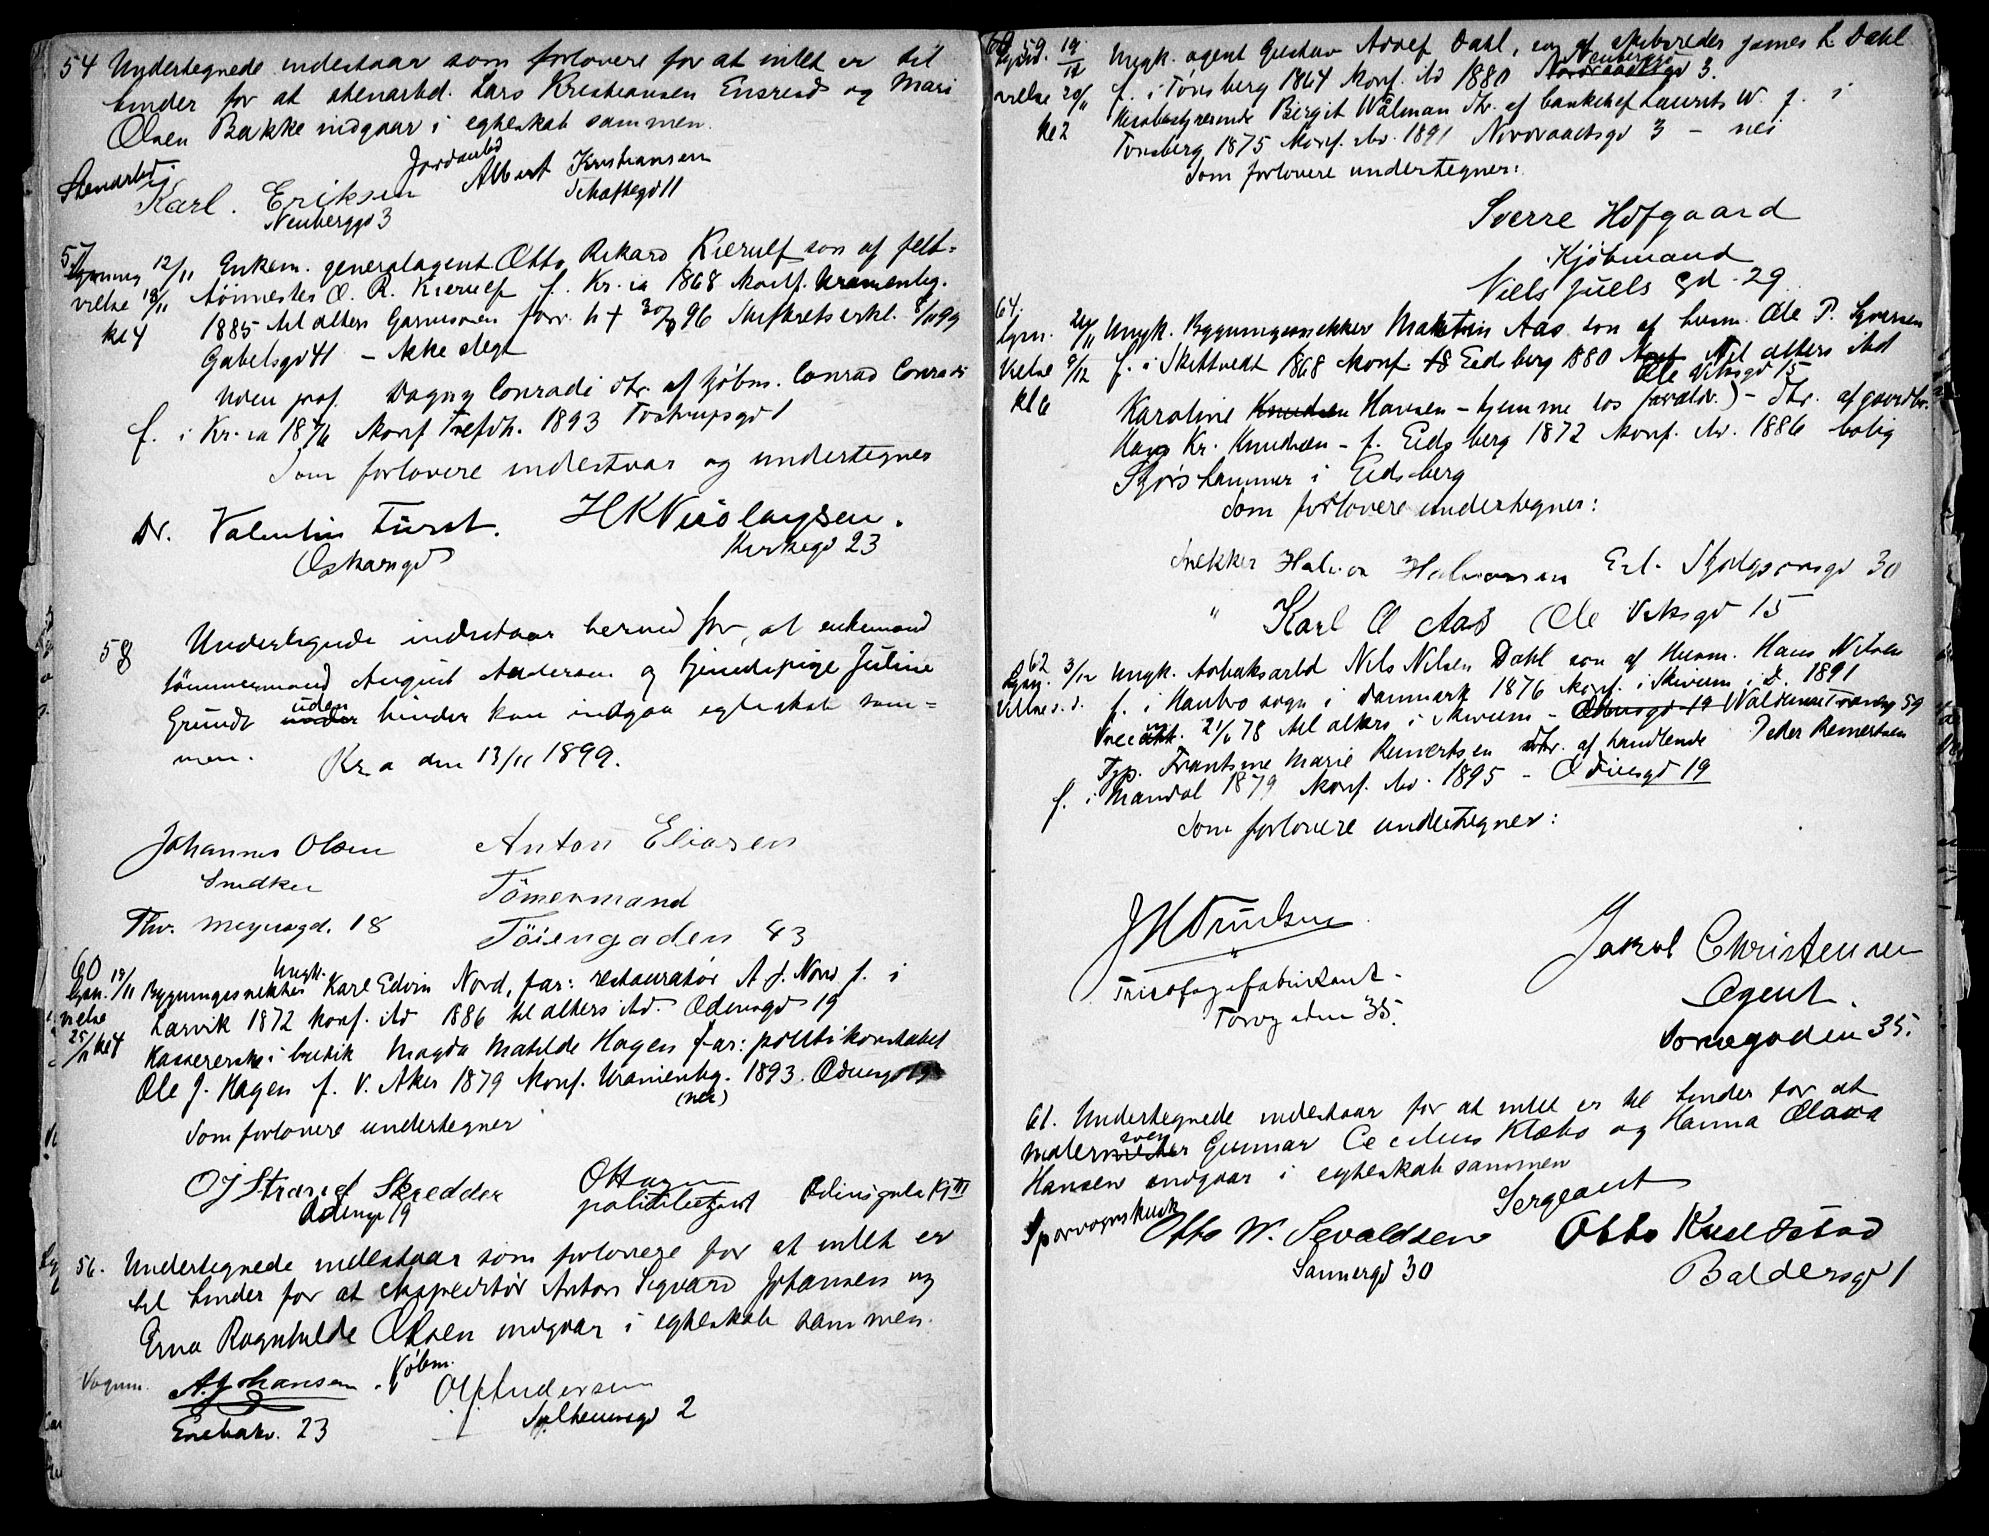 54 Undertegnede indestaar som forlovere for at intet er til
hinder for at stenarbd. Lars Kristiansen Ensrud og Mari
Olsen Bakke indgaar i egteskab sammen.
Stenarbd. Jordarbd
Karl. Eriksen Albert Kristiansen
Neuberggd 3 Schaftegd 11
57
lysning 12/11 Enkem. generalagent Otto Rikard Kierulf søn af felt-
vielse 18/11 tøimester O. R. Kierulf f. Kr.ia 1868 konf. Uranienbg.
kl 4 1885 til alters Garnisonen forr. h + 30/8 96 Skifteretserkl. 8/11 99
Gabelsgd 41 – Ikke slegt
uden prof. Dagny Conradi dtr. af kjøbm. Conrad Conradi
f. i Kr.ia 1876 konf Trefdh. 1893 Tostrupsgd 1
Som forlovere indestaar og undertegner
Dr. Valentin Fürst. H K Nicolaysen.
Oskarsgd Kirkegd 23
58 Undertegnede indestaar herved for, at enkemand
tømmermand August Andersen og tjenestepige Juline
Grundt under uden hinder kan indgaa egteskab sam=
men. Kr.a den 13/11 1899.
Johannes Olsen Anton Eliasen
Snedker Tömermand
Thv. Meyersgd. 18 Töiengaden 43
60 Ungk.
lysn. 18/11 Bygningssnekker Karl Edvin Nord, far: restauratør A. J. Nord f. i
vielse Larvik 1872 konf. ibd 1886 til alters ibd. Odinsgd 19
25/11 kl 4 Kassererske i butik Magda Matilde Hagen far: politikonstabel
Ole J. Hagen f. V. Aker 1879 konf. Uranienbg. 1893. Odinsgd 19
(nei)
Som forlovere undertegner
O J Strand Skredder
Odinsgd 19
56. Undertegnede indestaar som forlovere for at intet er
til hinder for at ekspeditør Anton Sigvard Johansen og
Erna Ragnhilde Olsen indgaar i egteskab sammen.
Vognm. A. Johansen. Kjøbm. O. Andersen
Enebakv. 23 Solheimsgd 2
59. 19/12 Ungk. agent Gustav Adolf Dahl, søn af skibsreder James L Dahl
vielse 20/11 f. i Tønsberg 1864 konf. ibd 1880 Nordraaksgd Neuberggd 3.
kl 2 Husbestyrerinde Birgit Wålman dtr. af bankchef Laurits W. f. i
Tønsberg 1875 konf. ibd. 1891 Nordraaksgd 3 – nei
Som forlovere undertegner:
Sverre Hofgaard
Kjöbmand
Niels Juels gd. 29
64.
lysn. 24/11 Ungk. Bygningssnekker Martin Aas søn af husm. Ole P. Syversen
Vielse 9/12 f. i Skiptvedt 1868 konf. Eidsberg 1880 til alters ibd
Ole Viksgd 15
kl 6 Karoline Knudsen Hansen – hjemme hos foræld. – dtr. af gaardbr.
Hans Kr. Knudsen – f. Eidsberg 1872 konf. ibd. 1886 bolig
hammer i Eidsberg
Som forlovere undertegner:
Snekker Halvor Halvorsen
30
" Karl O Aas Ole Viksgd 15
62
Lysn. 3/12 Ungk. Arbeidsarbd Nils Nilsen Dahl søn af Husm. Hans Nilsen
Vielse s.d. f. i sogn i Danmark 1876 konf. i Skivum i D. 1891
Vacc. 21/6 78 til alters i Skivum – Odinsgd 19 59
Tjp. Frantsine Marie Reinertsen dtr. af handlende Peder Reinertsen
f. i Mandal 1879 konf. ibd. 1895 – Odinsgd 19
Som forlovere undertegner:
Jakob Christensen
Tricotagefabrikant. Agent.
Torvgaden 35. Torvegaden 35.
61. Undertegnede indestaar for at intet er til hinder for at
malermester svend Gunnar Cecilius Klæbo og Hanna Olava
Hansen indgaar i egteskab sammen
Sergeant
Sporvognskusk Otto W. Sevaldsen Otto
Sannergd 30 Baldersgd 1